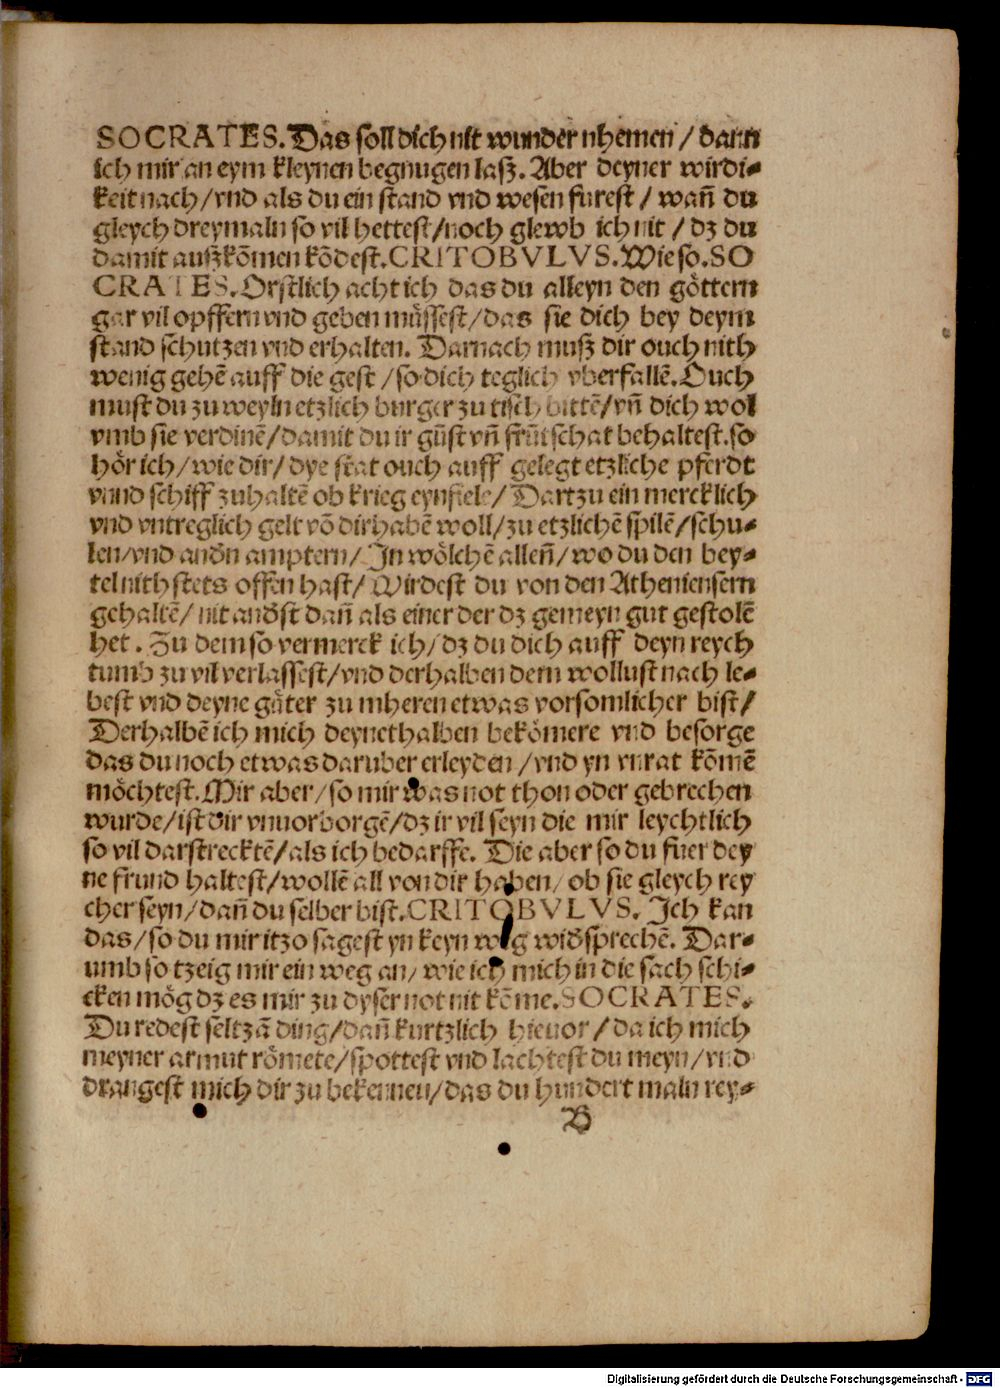 SOCRATES. Das soll dich nit wunder nhemen / dann
ich mir an eym kleynen begnugen lasz. Aber deyner wirdi⸗
keit nach / vnd als du ein stand vnd wesen furest / wañ du
gleych dreymaln so vil hettest / noch glewb ich nit / dz du
damit auszkōmen kōdest. CRITOBVLVS. Wie so. SO
CRATES. Orstlich acht ich das du alleyn den göttern
gar vil opffern vnd geben müssest / das sie dich bey deym
stand schutzen vnd erhalten. Darnach musz dir ouch nith
wenig gehē auff die gest / so dich teglich vberfallē. Ouch
must du zu weyln etzlich burger zu tisch bittē / vñ dich wol
vmb sie verdinē / damit du ir gūst vñ frūtschat behaltest. so
hör ich / wie dir / dye stat ouch auff gelegt etzliche pferdt
vnnd schiff zuhaltē ob krieg eynfiele / Dartzu ein mercklich
vnd vntreglich gelt vō dir habē woll / zu etzlichē spilē / schu⸗
len / vnd andn amptern / In wölchē alleñ / wo du den bey⸗
tel nith stets offen hast / Wirdest du von den Atheniensern
gehaltē / nit andst dañ als einer der dz gemeyn gut gestolē
het. Zu dem so vermerck ich / dz du dich auff deyn reych
tumb zu vil verlassest / vnd derhalben dem wollust nach le⸗
best vnd deyne güter zu mheren etwas vorsomlicher bist /
Derhalbē ich mich deynethalben bekömere vnd besorge
das du noch etwas daruber erleyden / vnd yn vnrat kōmē
möchtest. Mir aber / so mir was not thon oder gebrechen
wurde / ist dir vnuorborgē / dz ir vil seyn die mir leychtlich
so vil darstrecktē / als ich bedarffe. Die aber so du fuer dey
ne frund haltest / wollē all von dir haben / ob sie gleych rey
cher seyn / dañ du selber bist. CRITOBVLVS. Ich kan
das / so du mir itzo sagest yn keyn weg widsprechē. Dar⸗
umb so tzeig mir ein weg an / wie ich mich in die sach schi⸗
cken mög dz es mir zu dyser not nit kōme. SOCRATES.
Du redest seltzā ding / dañ kurtzlich hieuor / da ich mich
meyner armut römete / spottest vnd lachtest du meyn / vnd
drangest mich dir zu bekennen / das du hundert maln rey⸗
B
Digitalisierung gefördert durch die Deutsche Forschungsgemeinschaft - DFG